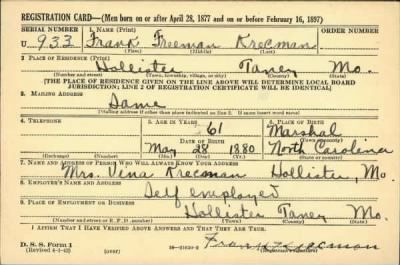 REGISTRATION CARD—(Men born on or after April 28, 1877 and on or before February 16, 1897)
SERIAL NUMBER 1. NAME (Print) ORDER NUMBER
U 933 Frank Freeman Krecman
(First) (Middle) (Last)
2. PLACE OF RESIDENCE (Print)
Hollister Taney Mo.
(Number and street) (Town, township, village, or city) (County) (State)
[THE PLACE OF RESIDENCE GIVEN ON THE LINE ABOVE WILL DETERMINE LOCAL BOARD
JURISDICTION; LINE 2 OF REGISTRATION CERTIFICATE WILL BE IDENTICAL]
3. MAILING ADDRESS
Same
[Mailing address if other than place indicated on line 2. If same insert word same]
4. TELEPHONE 5. AGE IN YEARS 6. PLACE OF BIRTH
61 Marshal
DATE OF BIRTH (Town or county)
May 28 1880 North Carolina
(Exchange) (Number) (Mo.) (Day) (Yr.) (State or country)
7. NAME AND ADDRESS OF PERSON WHO WILL ALWAYS KNOW YOUR ADDRESS
Mrs. Vena Krecman Hollister, Mo.
8. EMPLOYER'S NAME AND ADDRESS
Self employed
9. PLACE OF EMPLOYMENT OR BUSINESS
Hollister Taney Mo.
(Number and street or R. F. D. number) (Town) (County) (State)
I AFFIRM THAT I HAVE VERIFIED ABOVE ANSWERS AND THAT THEY ARE TRUE.
D. S. S. Form 1
(Revised 4-1-42) (over)